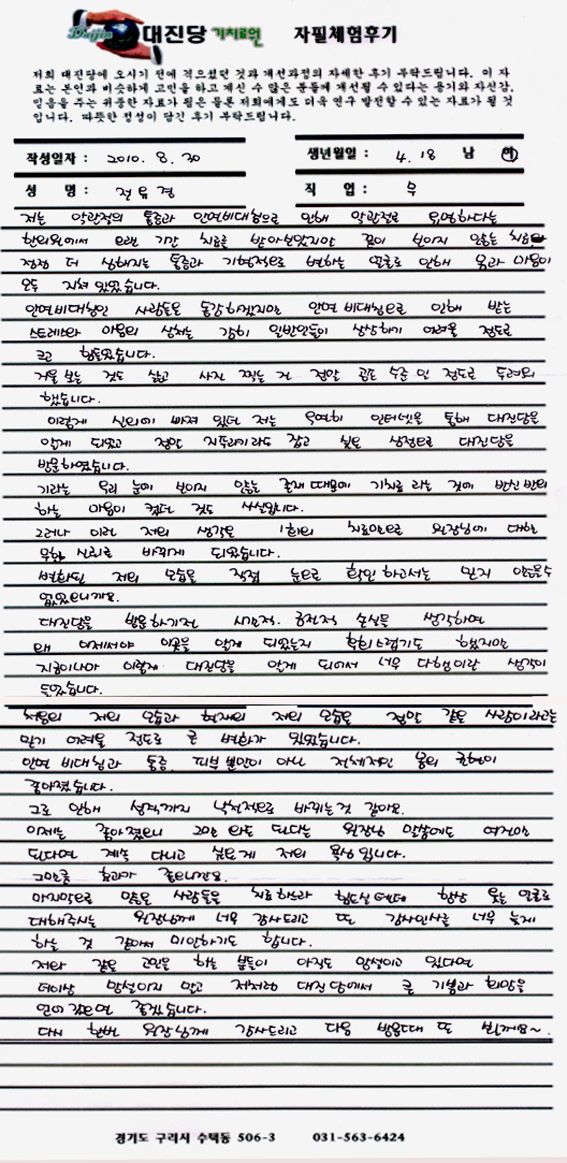 Daijin 대진당 기치료원 자필체험후기
저희 대진당에 오시기 전에 겪으셨던 것과 개선과정의 자세한 후기 부탁드립니다. 이 자
료는 본인과 비슷하게 고민을 하고 계신 수 많은 분들께 개선될 수 있다는 용기와 자신감,
믿음을 주는 귀중한 자료가 됨은 물론 저희에게도 더욱 연구 발전할 수 있는 자료가 될 것
입니다. 따뜻한 정성이 담긴 후기 부탁드립니다.
작성일자 : 2010. 8. 30 생년월일 : 4. 18 남 여
성 명 : 전유경 직 업 : 무
저는 악관절의 통증과 안면비대칭으로 인해 악관절로 유명하다는
한의원에서 오랜 기간 치료를 받아보았지만 끝이 보이지 않는 치료와
점점 더 심해지는 통증과 기형적으로 변하는 얼굴로 인해 몸과 마음이
모두 지쳐 있었습니다.
안면비대칭인 사람들은 동감하겠지만 안면 비대칭으로 인해 받는
스트레스와 마음의 상처는 감히 일반인들이 상상하기 어려울 정도로
크고 힘들었습니다.
거울 보는 것도 싫고 사진 찍는 건 정말 공포 수준 인 정도로 두려워
했습니다.
이렇게 실의에 빠져 있던 저는 우연히 인터넷을 통해 대진당을
알게 되었고 정말 지푸라기라도 잡고 싶은 심정으로 대진당을
방문하였습니다.
기라는 우리 눈에 보이지 않는 존재 때문에 기치료 라는 것에 반신반의
하는 마음이 컸던 것도 사실입니다.
그러나 이런 저의 생각은 1회의 치료만으로 원장님에 대한
무한 신뢰로 바뀌게 되었습니다.
변화된 저의 모습을 직접 눈으로 확인 하고서는 믿지 않을수
없었으니까요.
대진당을 방문하기전 시간적. 금전적 손실을 생각하며
왜 이제서야 이곳을 알게 되었는지 후회스럽기도 했지만
지금이나마 이렇게 대진당을 알게 되어서 너무 다행이란 생각이
들었습니다.
처음의 저의 모습과 현재의 저의 모습은 정말 같은 사람이라고는
믿기 어려울 정도로 큰 변화가 있었습니다.
안면 비대칭과 통증, 피부 뿐만이 아니 전체적인 몸의 균형이
좋아졌습니다.
그로 인해 성격까지 낙천적으로 바뀌는 것 같아요.
이제는 좋아졌으니 그만 와도 된다는 원장님 말씀에도 여건만
된다면 계속 다니고 싶은게 저의 욕심 입니다.
그만큼 효과가 좋으니깐요.
마지막으로 많은 사람들을 치료하느라 힘드실텐데 항상 웃는 얼굴로
대해주시는 원장님께 너무 감사드리고 또 감사인사를 너무 늦게
하는 것 같아서 미안하기도 합니다.
저와 같은 고민을 하는 분들이 아직도 망설이고 있다면
더이상 망설이지 말고 저처럼 대진당에서 큰 기쁨과 희망을
얻어 갔으면 좋겠습니다.
다시 한번 원장님께 감사드리고 다음 방문때 또 뵐께요~.
경기도 구리시 수택동 506-3 031-563-6424